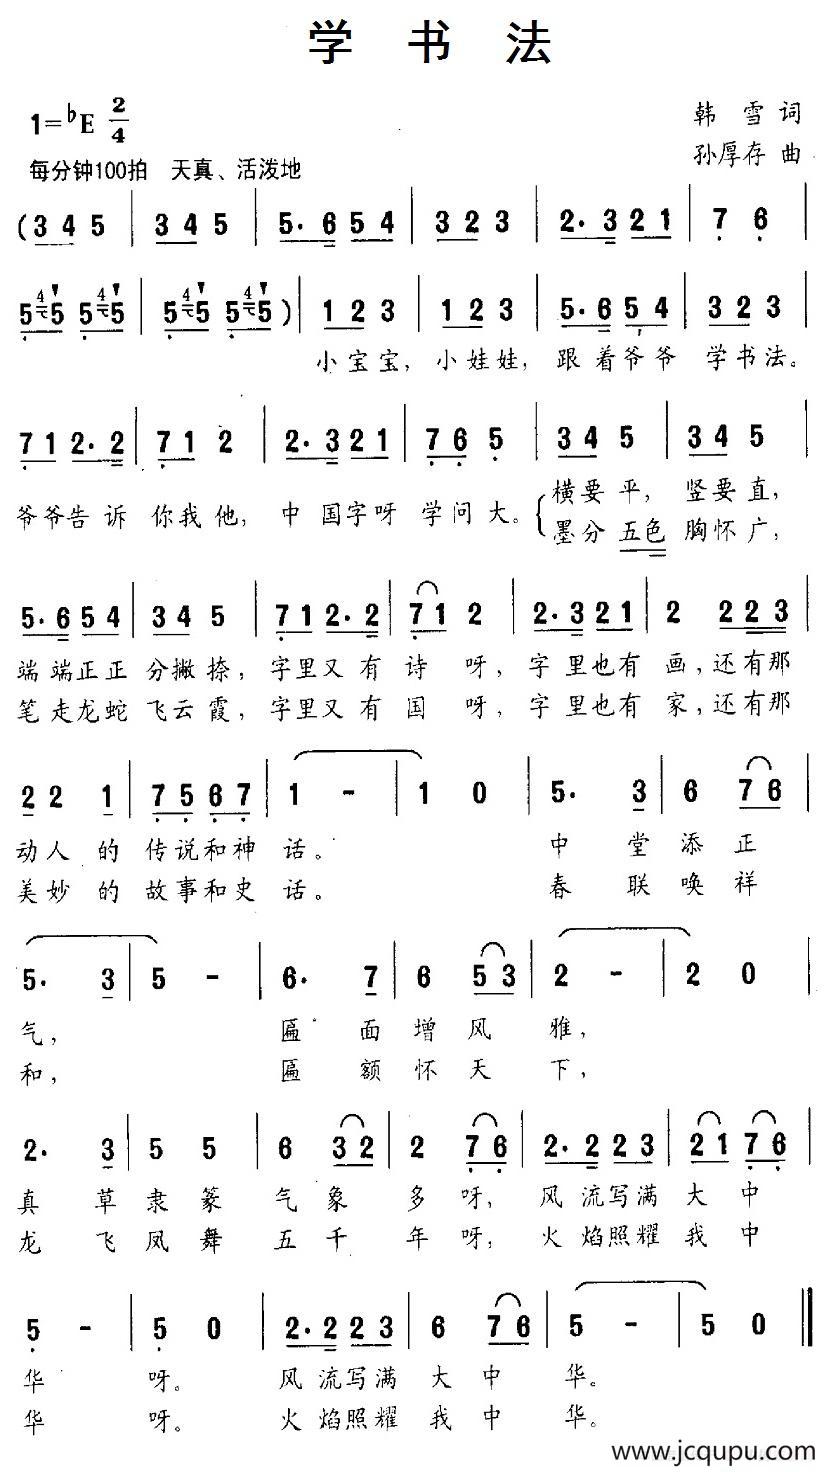 学 书 法
1=♭E 2/4
韩 雪 词
孙厚存 曲
每分钟100拍 天真、活泼地
(3 4 5 | 3 4 5 | 5· 6 5 4 | 3 2 3 | 2· 3 2 1 | 7 6 |
5 5 5 5 | 5 5 5 5 ) | 1 2 3 | 1 2 3 | 5· 6 5 4 | 3 2 3 |
小宝宝, 小娃娃, 跟着爷爷 学书法。
7 1 2· 2 | 7 1 2 | 2· 3 2 1 | 7 6 5 | 3 4 5 | 3 4 5 |
爷爷告诉 你我他, 中国字呀 学问大。
横要平, 竖要直,
墨分五色 胸怀广,
5· 6 5 4 | 3 4 5 | 7 1 2· 2 | 7 1 2 | 2· 3 2 1 | 2 2 2 3 |
端端正正 分撇捺, 字里又有诗呀, 字里也有画, 还有那
笔走龙蛇 飞云霞, 字里又有国呀, 字里也有家, 还有那
2 2 1 | 7 5 6 7 | 1 - | 1 0 | 5· 3 | 6 7 6 |
动人的 传说和神话。 中堂添正
美妙的 故事和史话。 春联唤祥
5· 3 | 5 - | 6· 7 | 6 5 3 | 2 - | 2 0 |
气, 匾面增风雅,
和, 匾额怀天下,
2· 3 | 5 5 | 6 3 2 | 2 7 6 | 2· 2 2 3 | 2 1 7 6 |
真草隶篆 气象多呀, 风流写满大中
龙飞凤舞 五千年呀, 火焰照耀我中
5 - | 5 0 | 2· 2 2 3 | 6 7 6 | 5 - | 5 0 ‖
华呀。 风流写满大中华。
华呀。 火焰照耀我中华。
www.jcqupu.com